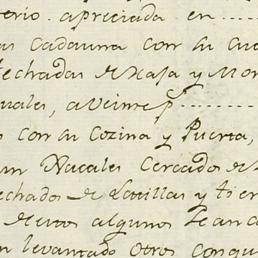 erio. apreciada en
as Cadauna con su cu
techadas de Xasa y Mor
uales, a Veinte p
o con su Cozina y Puerta,
un Xacales Cercados de
techados de Latillas y tier
de estos algunos se an ca
n levantado otros conqu